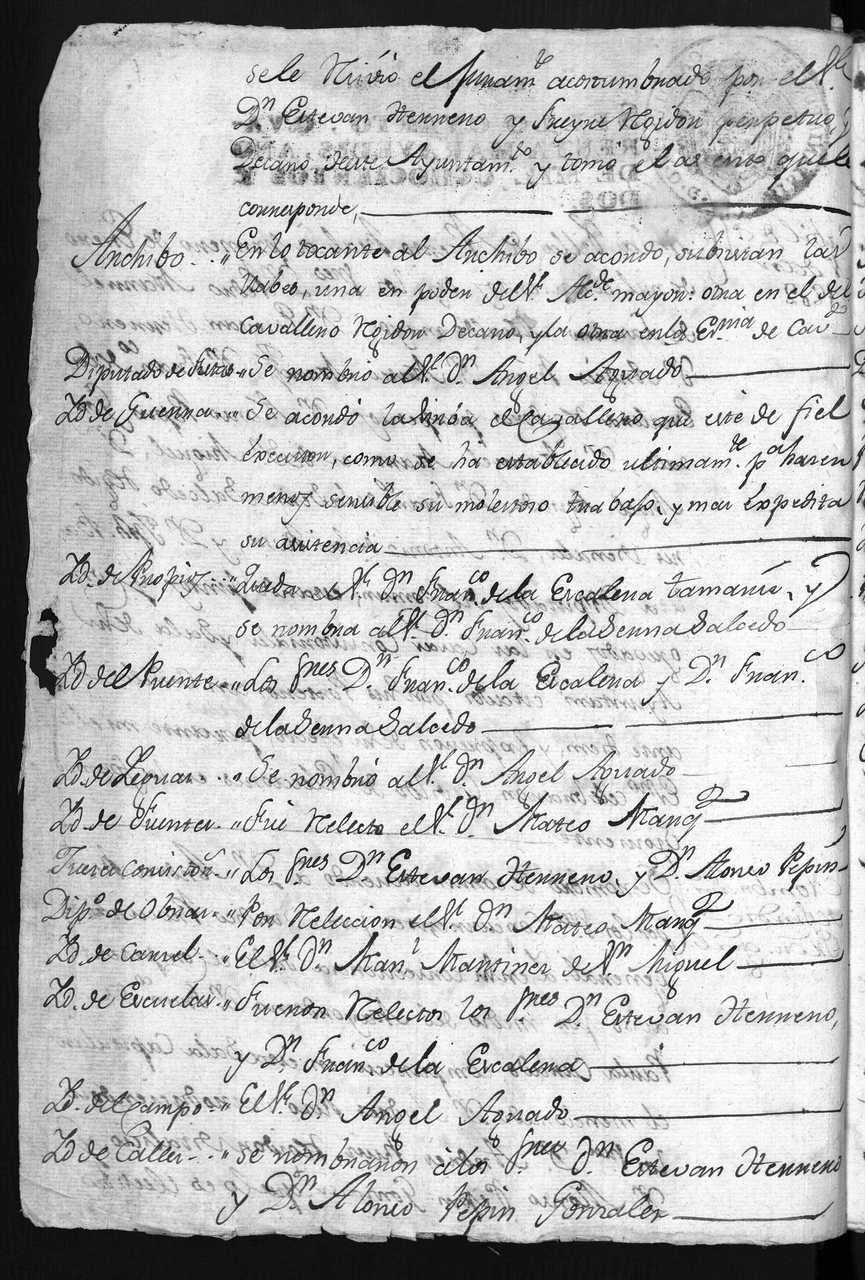 se le recivió el juram.to acostumbrado por el S.r
D.n Estevan Herrero y Freyre Rejidor perpetuo, y
Decano deste Ayuntam.to y tomo el asiento que le
corresponde,
Archibo " En lo tocante al Archibo se acordo, subsistan las
llabes, una en poder del S.r Alc.de mayor: otra en el del
Cavallero Rejidor Decano, y la otra en la Es.nia de Cav.do
Diputado de fiestas " Se nombró al S.r D.n Angel Aguado
Yd. de Guerra " Se acordó la sirva el Cavallero que esté de fiel
executor, como se ha establecido ultimam.te p.a hacer
menos sensible su molestoso trabajo, y mas expedita
su asistencia
Yd. de Propios " Queda S.r D.n Fran.co de la Escalera Tamariz, y
se nombra al S.r D.n Fran.co de la Serna Salcedo
Yd. del Puente " Los S.res D.n Fran.co de la Escalera y D.n Fran.co
de la Serna Salcedo
Yd. de Yeguas " Se nombró al S.r D.n Angel Aguado
Yd. de Fuentes " Fue relecto el S.r D.n Mateo Marq.z
" Los S.res D.n Estevan Herrero, y D.n Alonso Pepin
Dip.o de Obras " Por relección el S.r D.n Mateo Marq.z
Yd. de Carcel " El S.r D.n Man.l Martinez de S.n Miguel
Yd. de Escuelas " Fueron relectos los S.res D.n Estevan Herrero,
y D.n Fran.co de la Escalera
Yd. del Campo " El S.r D.n Angel Aguado
Yd. de Calles " se nombraron a los S.res D.n Estevan Herrero
y D.n Alonso Pepin Gonzalez